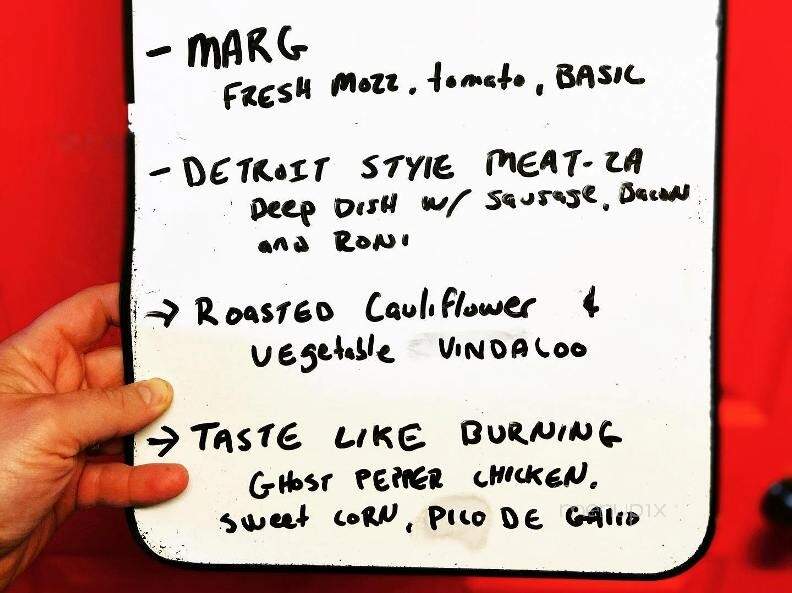 - MARG
FRESH MOZZ, tomato, BASIC
- DETROIT STYLE MEAT-ZA
DEEP DISH W/ Sausage, BACON
and RONI
→ ROASTED Cauliflower &
VEgetable VINDALOO
→ TASTE LIKE BURNING
GHOST PEPPER CHICKEN,
sweet CORN, PICO DE GALLO